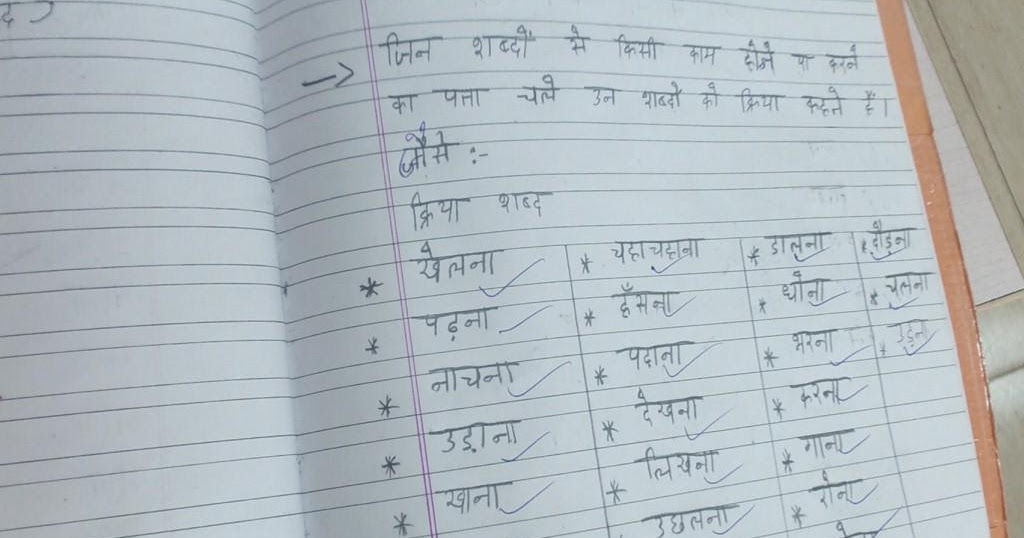 जिन शब्दों से किसी काम होने या करने
का पता चले उन शब्दों को क्रिया कहते हैं।
जैसे :-
क्रिया शब्द
* खेलना * चहाचहाना * डालना * दौड़ना
* पढ़ना * हँसना * धोना * चलना
* नाचना * पढाना * भरना * उड़ना
* उड़ाना * देखना * करना
* खाना * लिखना * गाना
उछलना * रोना